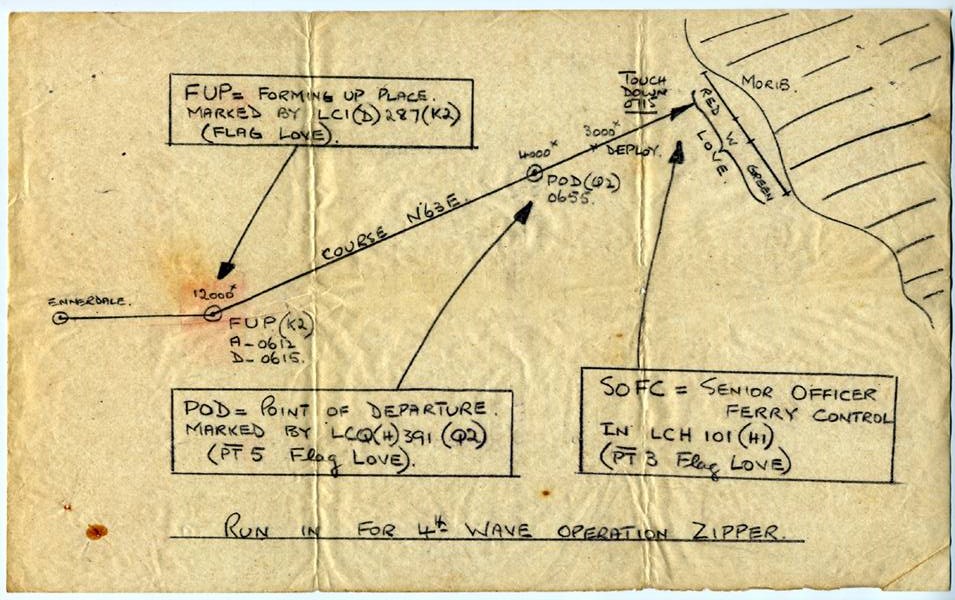 FUP = FORMING UP PLACE.
MARKED BY LCI(D) 287(K2)
(FLAG LOVE).
TOUCH
DOWN
0715
MORIB.
RED
W
GREEN
LOVE
3000ˣ
DEPLOY.
4000ˣ
POD(Q2)
0655.
COURSE N63E.
ENNERDALE.
12000ˣ
FUP(K2)
A-0612
D-0615.
POD = POINT OF DEPARTURE.
MARKED BY LCQ(H) 391 (Q2)
(PT 5 Flag LOVE).
SOFC = SENIOR OFFICER
FERRY CONTROL
IN LCH 101 (H1)
(PT 3 Flag LOVE)
RUN IN FOR 4th WAVE OPERATION ZIPPER.